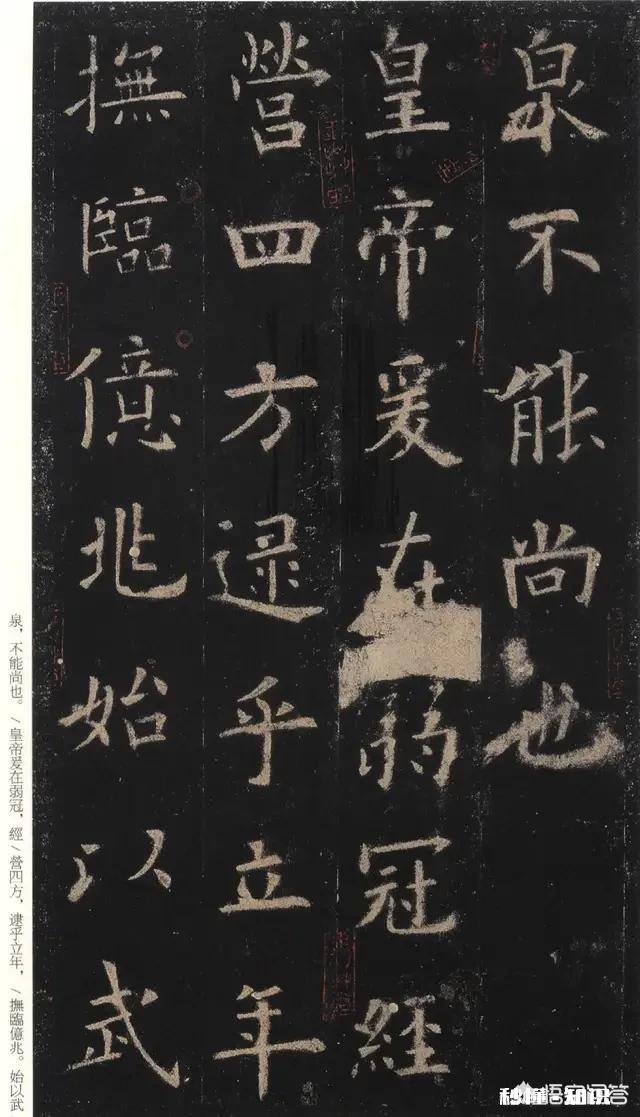 泉不能尚也
皇帝爰在弱冠經
營四方逮乎立年
撫臨億兆始以武
泉，不能尚也。/皇帝爰在弱冠，經/營四方，逮乎立年，/撫臨億兆。始以武
悟空问答
秒懂·知识